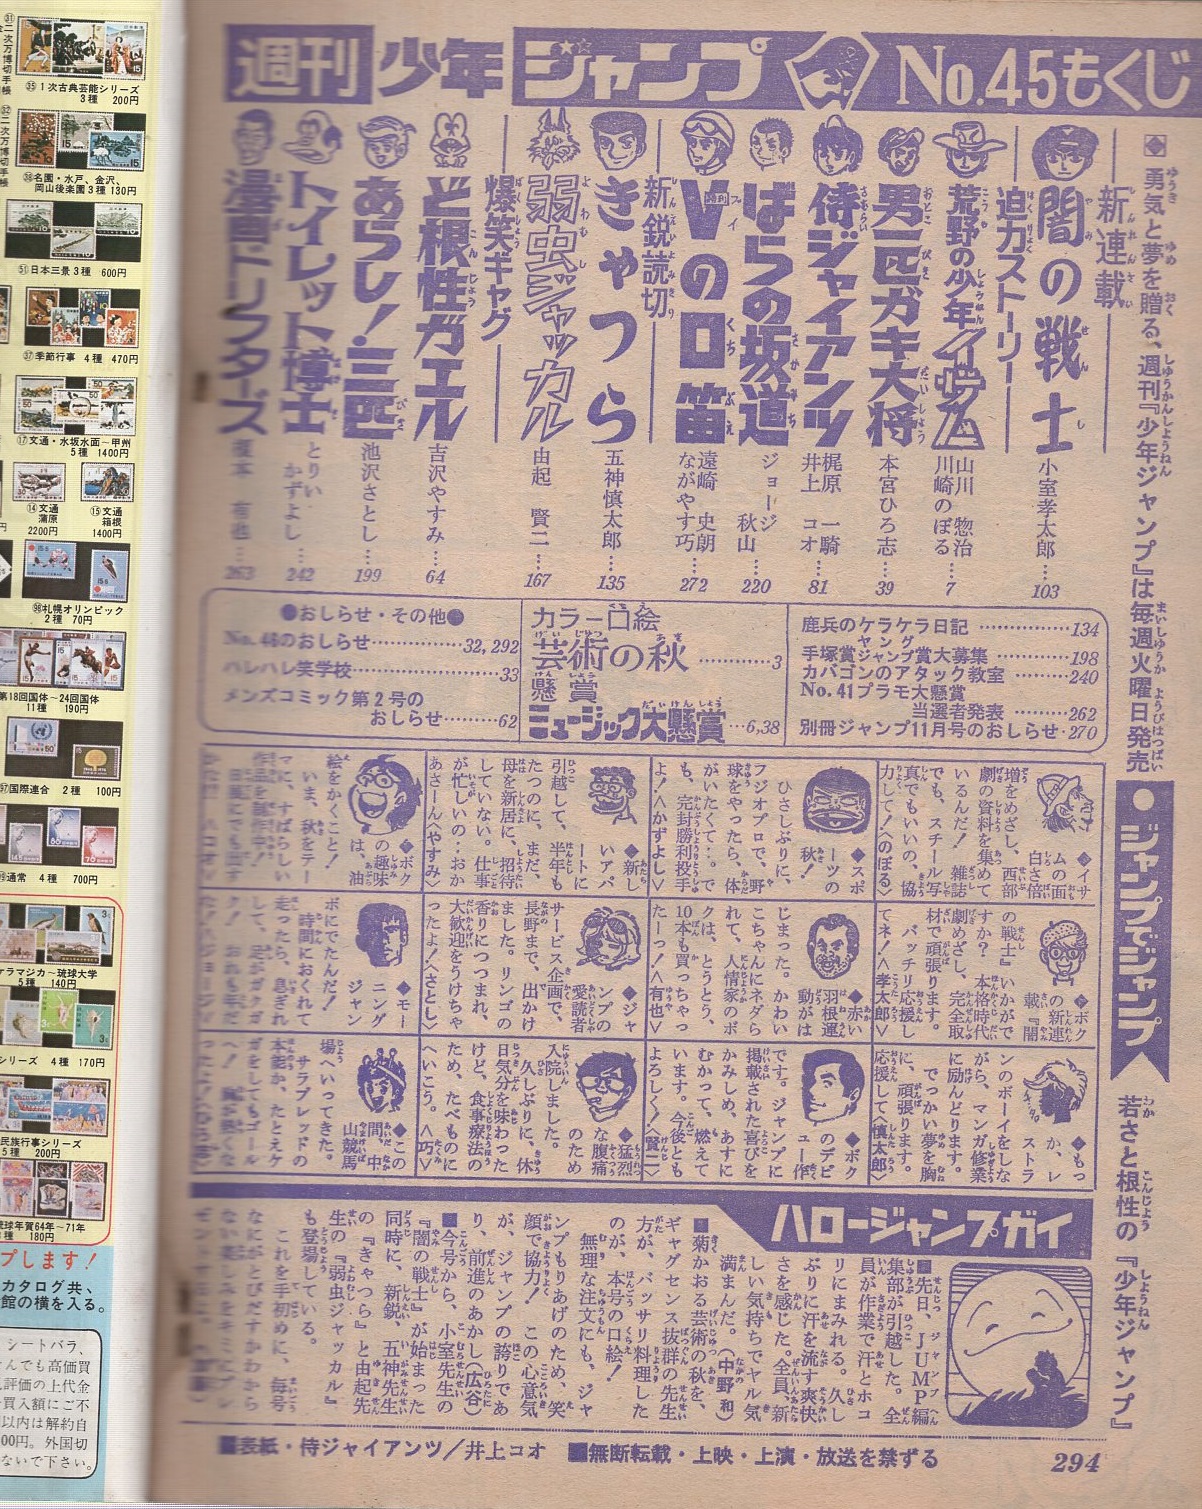 週刊少年ジャンプ No.45もくじ
◆勇気と夢を贈る、週刊『少年ジャンプ』は毎週火曜日発売
新連載
闇の戦士
小室孝太郎…103
迫力ストーリー
荒野の少年イサム
山川 惣治
川崎のぼる…7
男一匹ガキ大将
本宮ひろ志…39
侍ジャイアンツ
梶原 一騎
井上 コオ…81
ばらの坂道
ジョージ秋山…220
Vの口笛
遠崎 史朗
ながやす巧…272
新鋭読切
きゃつら
五神慎太郎…135
弱虫ジャッカル
由起 賢二…167
爆笑ギャグ
ど根性ガエル
吉沢やすみ…64
あらし!三匹
池沢さとし…199
トイレット博士
とりい かずよし…242
漫画ドリフターズ
榎本 有也…263
●おしらせ・その他●
No.46のおしらせ…………32,292
ハレハレ笑学校…………33
メンズコミック第2号の
おしらせ………62
カラー口絵
芸術の秋…………3
懸賞
ミュージック大懸賞…6,38
鹿兵のケラケラ日記…………134
手塚賞ヤングジャンプ賞大募集………198
カバゴンのアタック教室……240
No.41プラモ大懸賞
当選者発表………262
別冊ジャンプ11月号のおしらせ・270
●ジャンプでジャンプ
若さと根性の『少年ジャンプ』
◆イサムの面白さ倍増をめざし、西部劇の資料を集めているんだ!雑誌でも、スチール写真でもいいの、協力して!〈のぼる〉
◆スポーツの秋!ひさしぶりに、フジオプロで、野球をやったら、体がいたくて…。でも、完封勝利投手よ!〈かずよし〉
◆新しいアパートに引越して、半年もたつのに、まだ、母を新居に、招待していない。仕事が忙しいの…おかあさーん〈やすみ〉
◆ボクの趣味は、油絵をかくこと!いま、秋をテーマに、すばらしい作品を制作中!
◆ボクの新連載『闇の戦士』いかがですか?本格時代劇めざし、完全取材で頑張ります。バッチリ応援してネ!〈孝太郎〉
◆赤い羽根運動がはじまった。かわいこちゃんにネダられて、人情家のボクは、とうとう、10本も買っちゃったーっ!〈有也〉
◆ジャンプの愛読者サービス企画で、長野まで、出かけました。リンゴの香りにつつまれ、大歓迎をうけちゃったよ!〈さとし〉
◆モーニングジャンボにでたんだ!時間におくれて走ったら、息ぎれして、足がガクガク!
◆もっか、レストランのボーイをしながら、マンガ修業に励んどります。でっかい夢を胸に、頑張ります。応援して〈慎太郎〉
◆ボクのデビュー作です。ジャンプに掲載された喜びをかみしめ、あすにむかって、燃えています。今後ともよろしく!〈賢二〉
◆猛烈な腹痛のため入院しました。久しぶりに、休日気分を味わったけど、食事療法のため、たべものにへいこう。〈巧〉
◆この間、中山競馬場へいってきた。サラブレッドの本能か、たとえケガをしてもゴールへ!
ハロージャンプガイ
■先日、JUMP編集部が引越した。全員が作業で汗とホコリにまみれる。久しぶりに汗を流す爽快さを感じた。全員、新しい気持ちでヤル気満まんだ。(中野和)
■菊かおる芸術の秋を、ギャグセンス抜群の先生方が、バッサリ料理したのが、本号の口絵!無理な注文にも、ジャンプもりあげのため、笑顔で協力!この心意気が、ジャンプの誇りであり、前進のあかし(広谷)
■今号から、小室先生の『闇の戦士』が始まった同時に、新鋭、五神先生の『きゃつら』と由起先生の『弱虫ジャッカル』も登場している。これを手初めに、毎号なにがとびだすかわからない楽しみをキミにプレゼント
■表紙・侍ジャイアンツ/井上コオ ■無断転載・上映・上演・放送を禁ずる
294
㉟1次古典芸能シリーズ
3種 200円
㊳名園・水戸、金沢、
岡山後楽園3種 130円
51日本三景3種 600円
㊲季節行事 4種 470円
⑰文通・水坂水面~甲州
5種 1400円
⑭文通
蒲原
2200円
⑮文通
箱根
1400円
98札幌オリンピック
2種 70円
第18回国体~24回国体
11種 190円
国際連合 2種 100円
通常 4種 700円
ケラマジカ~琉球大学
5種 140円
シリーズ 4種 170円
民族行事シリーズ
5種 200円
琉球年賀64年~71年
種 180円
プします!
カタログ共、
館の横を入る。
シートバラ、
んでも高価買
評価の上代金
買入額にご不
以内は解約自
00円。外国切
ないで下さい。